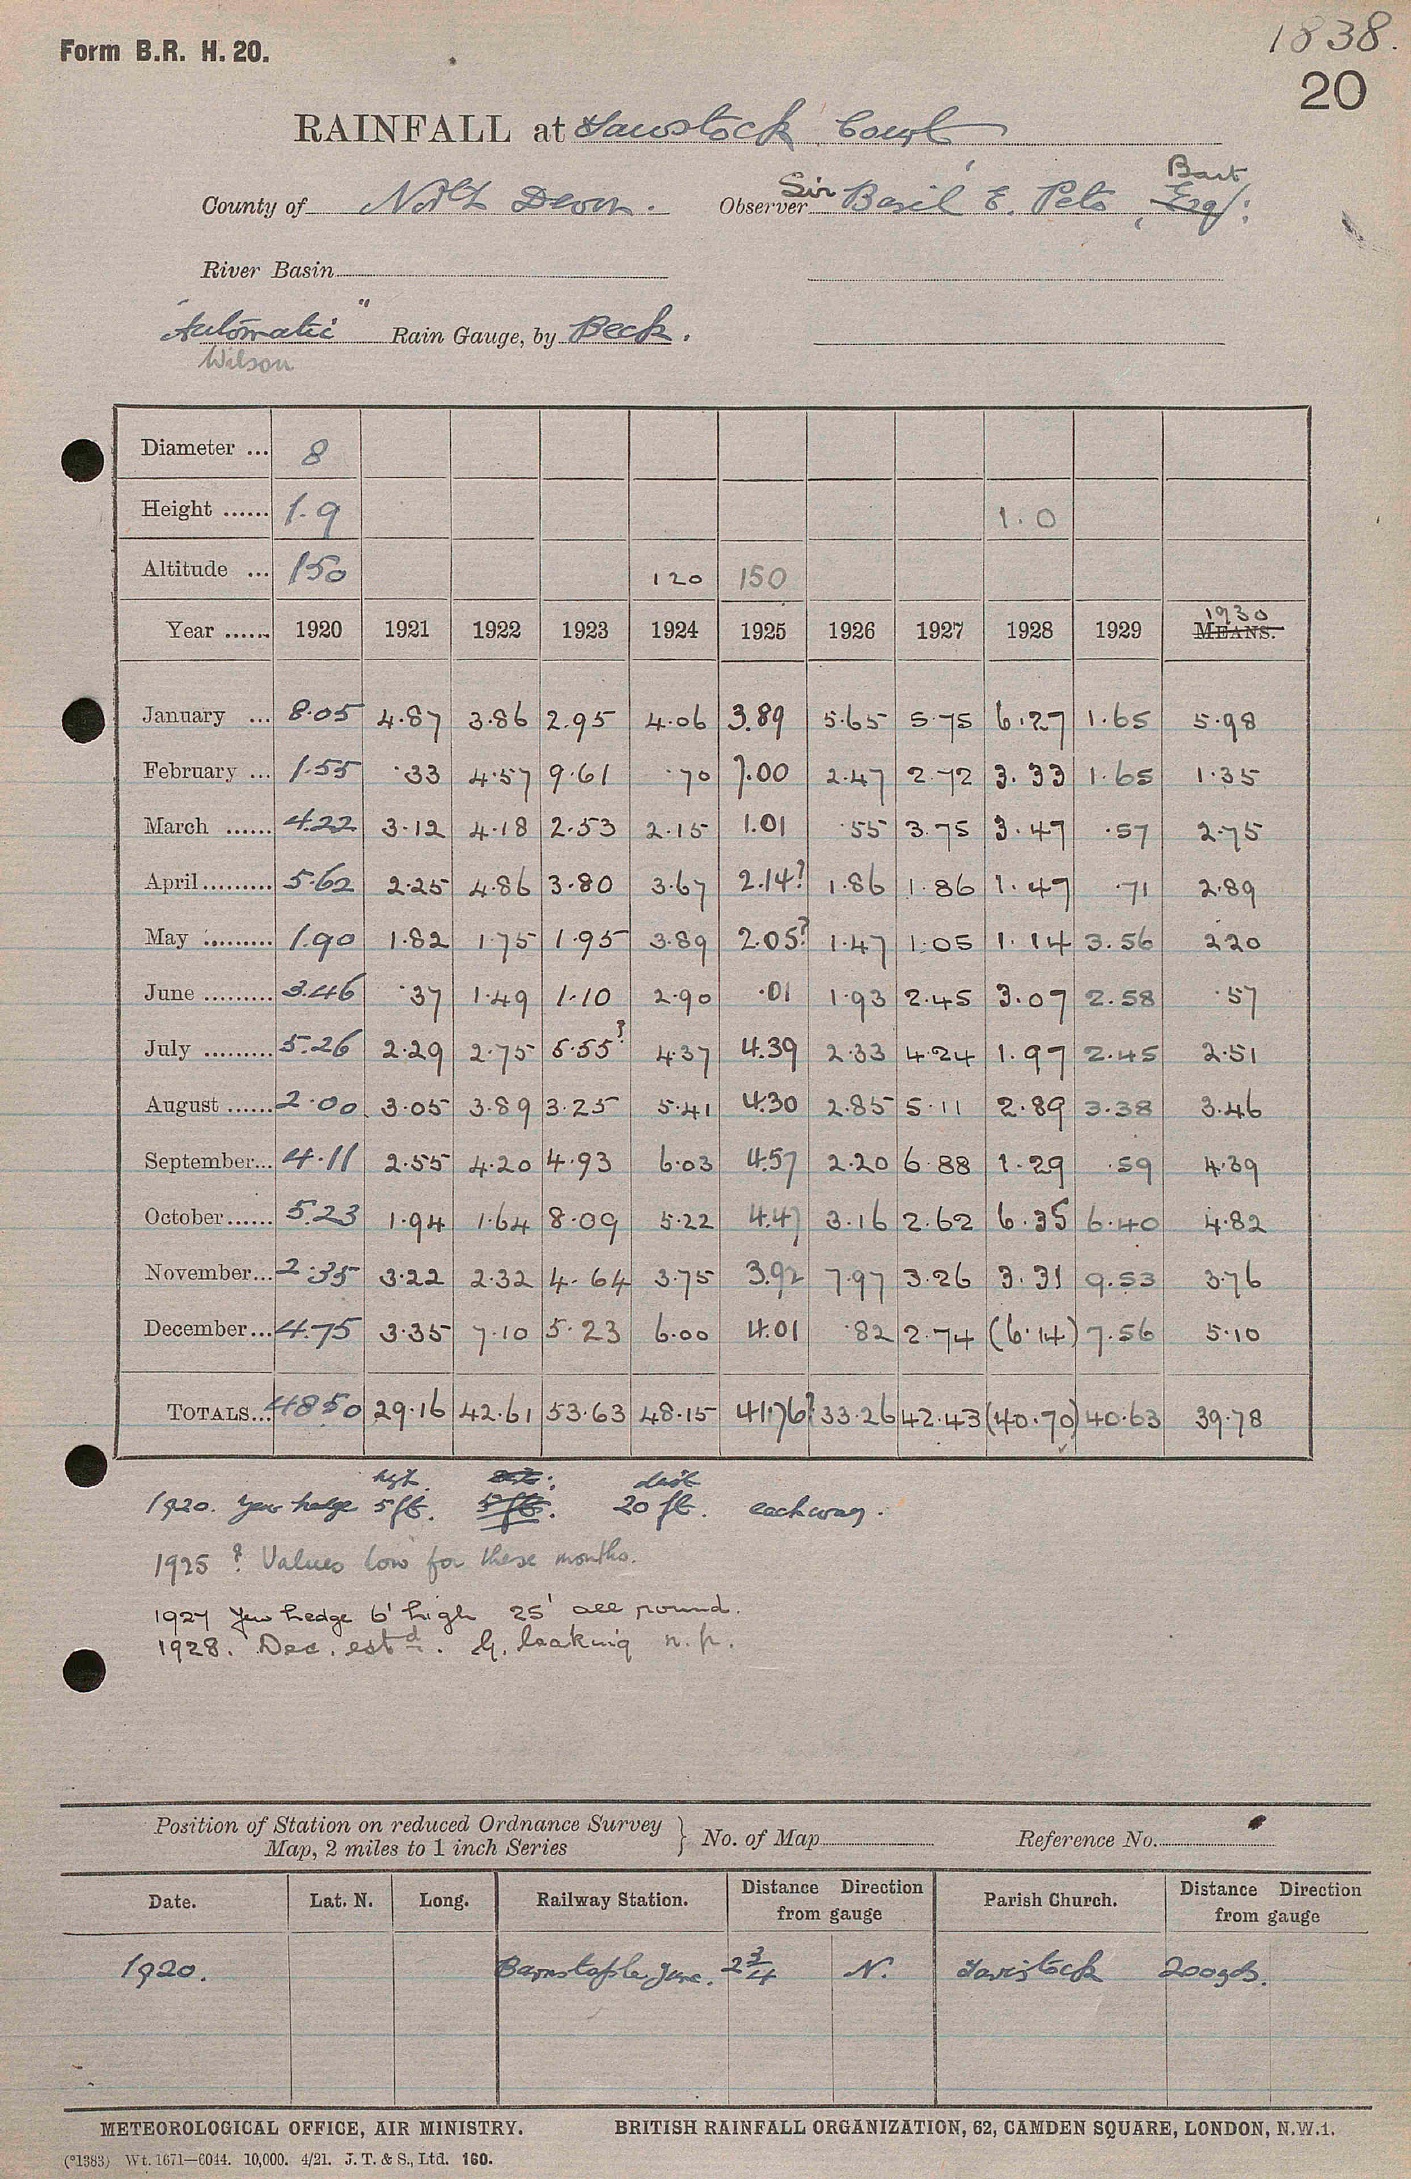 Form B.R. H. 20.
1838.
20
RAINFALL at Tawstock Court
County of North Devon. Observer Sir Basil E. Peto, Esq; Bart
River Basin
"Automatic" Rain Gauge, by Beck.
Wilson
Diameter ... 8
Height ...... 1.9 1.0
Altitude ... 150 120 150
Year ...... 1920 1921 1922 1923 1924 1925 1926 1927 1928 1929 MEANS. 1930
January ... 8.05 4.87 3.86 2.95 4.06 3.89 5.65 5.75 6.27 1.65 5.98
February ... 1.55 .33 4.57 9.61 .70 7.00 2.47 2.72 3.33 1.65 1.35
March ...... 4.22 3.12 4.18 2.53 2.15 1.01 .55 3.75 3.47 .57 2.75
April ......... 5.62 2.25 4.86 3.80 3.67 2.14? 1.86 1.86 1.47 .71 2.89
May ......... 1.90 1.82 1.75 1.95 3.89 2.05? 1.47 1.05 1.14 3.56 2.20
June ......... 3.46 .37 1.49 1.10 2.90 .01 1.93 2.45 3.07 2.58 .57
July ......... 5.26 2.29 2.75 5.55? 4.37 4.39 2.33 4.24 1.97 2.45 2.51
August ...... 2.00 3.05 3.89 3.25 5.41 4.30 2.85 5.11 2.89 3.38 3.46
September... 4.11 2.55 4.20 4.93 6.03 4.57 2.20 6.88 1.29 .59 4.39
October ...... 5.23 1.94 1.64 8.09 5.22 4.47 3.16 2.62 6.35 6.40 4.82
November... 2.35 3.22 2.32 4.64 3.75 3.92 7.97 3.26 3.31 9.53 3.76
December... 4.75 3.35 7.10 5.23 6.00 4.01 .82 2.74 (6.14) 7.56 5.10
TOTALS... 48.50 29.16 42.61 53.63 48.15 41.76? 33.26 42.43 (40.70) 40.63 39.78
hgt. dist
1920. Yew hedge 5 ft. 20 ft. each way.
1925 ? Values low for these months.
1927 Yew hedge 6' high 25' all round.
1928. Dec. estd. G. leaking n.p.
Position of Station on reduced Ordnance Survey
Map, 2 miles to 1 inch Series } No. of Map Reference No.
Date. Lat. N. Long. Railway Station. Distance Direction from gauge Parish Church. Distance Direction from gauge
1920. Barnstaple Junc. 2 3/4 N. Tavistock 200 yds.
METEOROLOGICAL OFFICE, AIR MINISTRY. BRITISH RAINFALL ORGANIZATION, 62, CAMDEN SQUARE, LONDON, N.W.1.
(*1383) Wt. 1671—6044. 10,000. 4/21. J. T. & S., Ltd. 160.